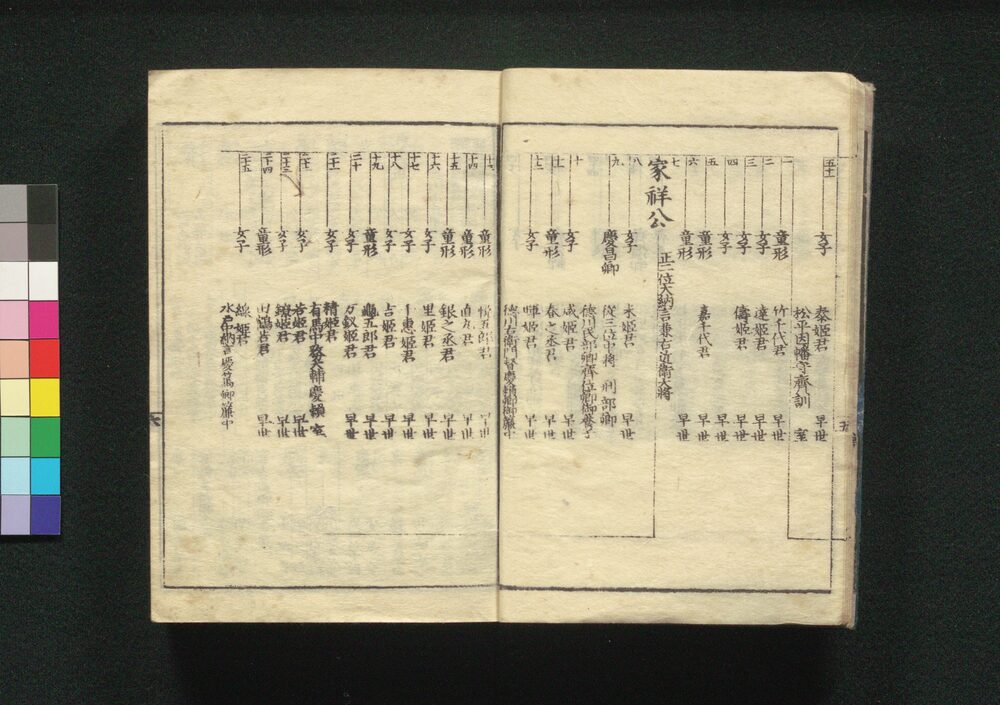 五十一 女子 泰姫君 早世
松平因幡守齊訓 室
一 童形 竹千代君 早世
二 女子 達姫君 早世
三 女子 儔姫君 早世
四 女子 早世
五 童形 嘉千代君 早世
六 童形 早世
七 家祥公 正二位大納言兼右近衛大将
八 女子 米姫君 早世
九 慶昌卿 從三位中将 刑部卿
德川式部卿齊位卿御養子
十 女子 咸姫君 早世
十一 童形 春之丞君 早世
十二 女子 暉姫君 早世
德川右衛門督慶頼卿御簾中
童形 悦五郎君 早世
十四 童形 直丸君 早世
十五 童形 銀之丞君 早世
十六 女子 里姫君 早世
十七 女子 千恵姫君 早世
十八 女子 吉姫君 早世
十九 童形 亀五郎君 早世
二十 女子 万釵姫君 早世
二十一 女子 精姫君
有馬中務大輔慶頼 室
女子 若姫君 早世
二十三 女子 鐐姫君 早世
二十四 童形 田鶴吉君 早世
二十五 女子 線姫君
水戸中納言慶篤卿簾中
五
六